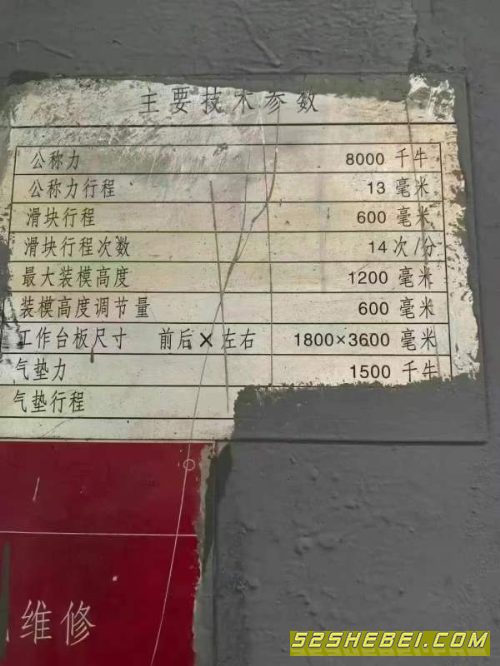 主要技术参数
公称力 8000 千牛
公称力行程 13 毫米
滑块行程 600 毫米
滑块行程次数 14 次/分
最大装模高度 1200 毫米
装模高度调节量 600 毫米
工作台板尺寸 前后×左右 1800×3600 毫米
气垫力 1500 千牛
气垫行程
维修
52SHEBEI.COM